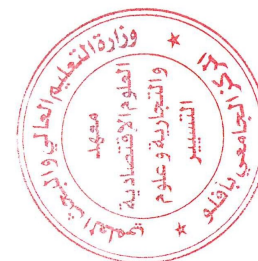 وزارة التعليم العالي والبحث العلمي
المركز الجامعي بأفلو
معهد
العلوم الإقتصادية
والتجارية وعلوم
التسيير